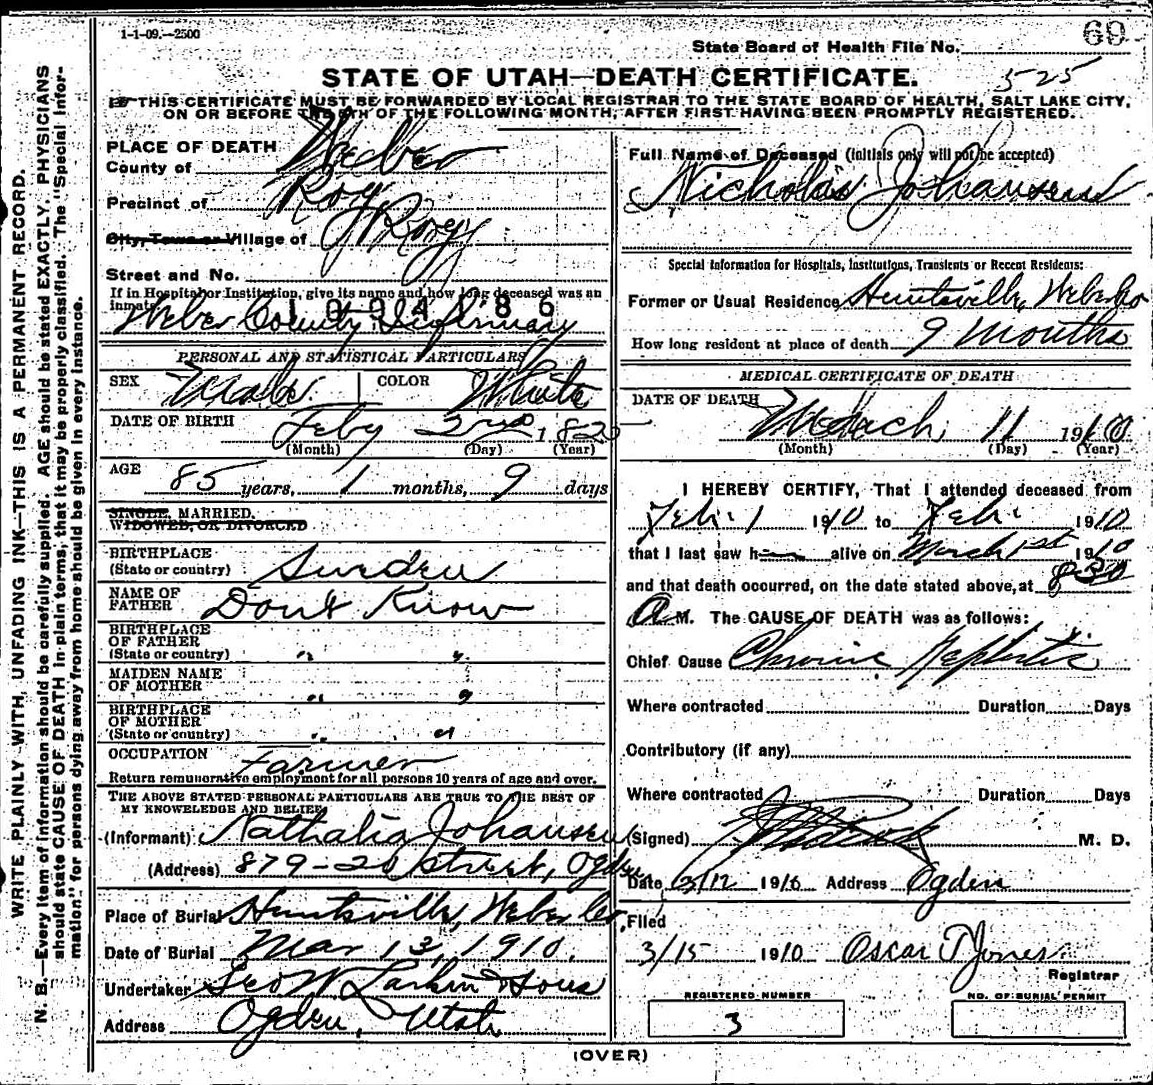 1-1-09.—2500
69
State Board of Health File No.
525
STATE OF UTAH—DEATH CERTIFICATE.
THIS CERTIFICATE MUST BE FORWARDED BY LOCAL REGISTRAR TO THE STATE BOARD OF HEALTH, SALT LAKE CITY,
ON OR BEFORE THE 5TH OF THE FOLLOWING MONTH, AFTER FIRST HAVING BEEN PROMPTLY REGISTERED.
WRITE PLAINLY WITH, UNFADING INK—THIS IS A PERMANENT RECORD.
N. B.—Every item of information should be carefully supplied. AGE should be stated EXACTLY. PHYSICIANS
should state CAUSE OF DEATH in plain terms, that it may be properly classified. The "Special Infor-
mation" for persons dying away from home should be given in every instance.
PLACE OF DEATH
County of Weber
Precinct of Roy
City, Town or Village of Roy
Street and No.
If in Hospital or Institution, give its name and how long deceased was an
inmate
Weber County Infirmary
PERSONAL AND STATISTICAL PARTICULARS
SEX Male COLOR White
DATE OF BIRTH Feby 2nd 1825
(Month) (Day) (Year)
AGE 85 years, 1 months, 9 days
SINGLE, MARRIED,
WIDOWED, OR DIVORCED
BIRTHPLACE
(State or country) Sweden
NAME OF
FATHER Dont Know
BIRTHPLACE
OF FATHER
(State or country) " "
MAIDEN NAME
OF MOTHER " "
BIRTHPLACE
OF MOTHER
(State or country) " "
OCCUPATION Farmer
Return remunerative employment for all persons 10 years of age and over.
THE ABOVE STATED PERSONAL PARTICULARS ARE TRUE TO THE BEST OF
MY KNOWLEDGE AND BELIEF
(Informant) Nathalia Johansen
(Address) 879-20 Street, Ogden
Place of Burial Huntsville, Weber Co.
Date of Burial Mar 13, 1910.
Undertaker Geo W Larkin & Sons
Address Ogden, Utah
Full Name of Deceased (initials only will not be accepted)
Nicholas Johansen
Special Information for Hospitals, Institutions, Transients or Recent Residents:
Former or Usual Residence Huntsville, Weber Co
How long resident at place of death 9 Months
MEDICAL CERTIFICATE OF DEATH
DATE OF DEATH
March 11 1910
(Month) (Day) (Year)
I HEREBY CERTIFY, That I attended deceased from
Feb. 1 1910 to Feb. 1910
that I last saw h alive on March 1st 1910
and that death occurred, on the date stated above, at 8-30
A M. The CAUSE OF DEATH was as follows:
Chief Cause Chronic Nephritis
Where contracted Duration Days
Contributory (if any)
Where contracted Duration Days
(Signed) M. D.
Date 3/12 1910 Address Ogden
Filed
3/15 1910 Oscar T Jones
Registrar
REGISTERED NUMBER
3
NO. OF BURIAL PERMIT
(OVER)